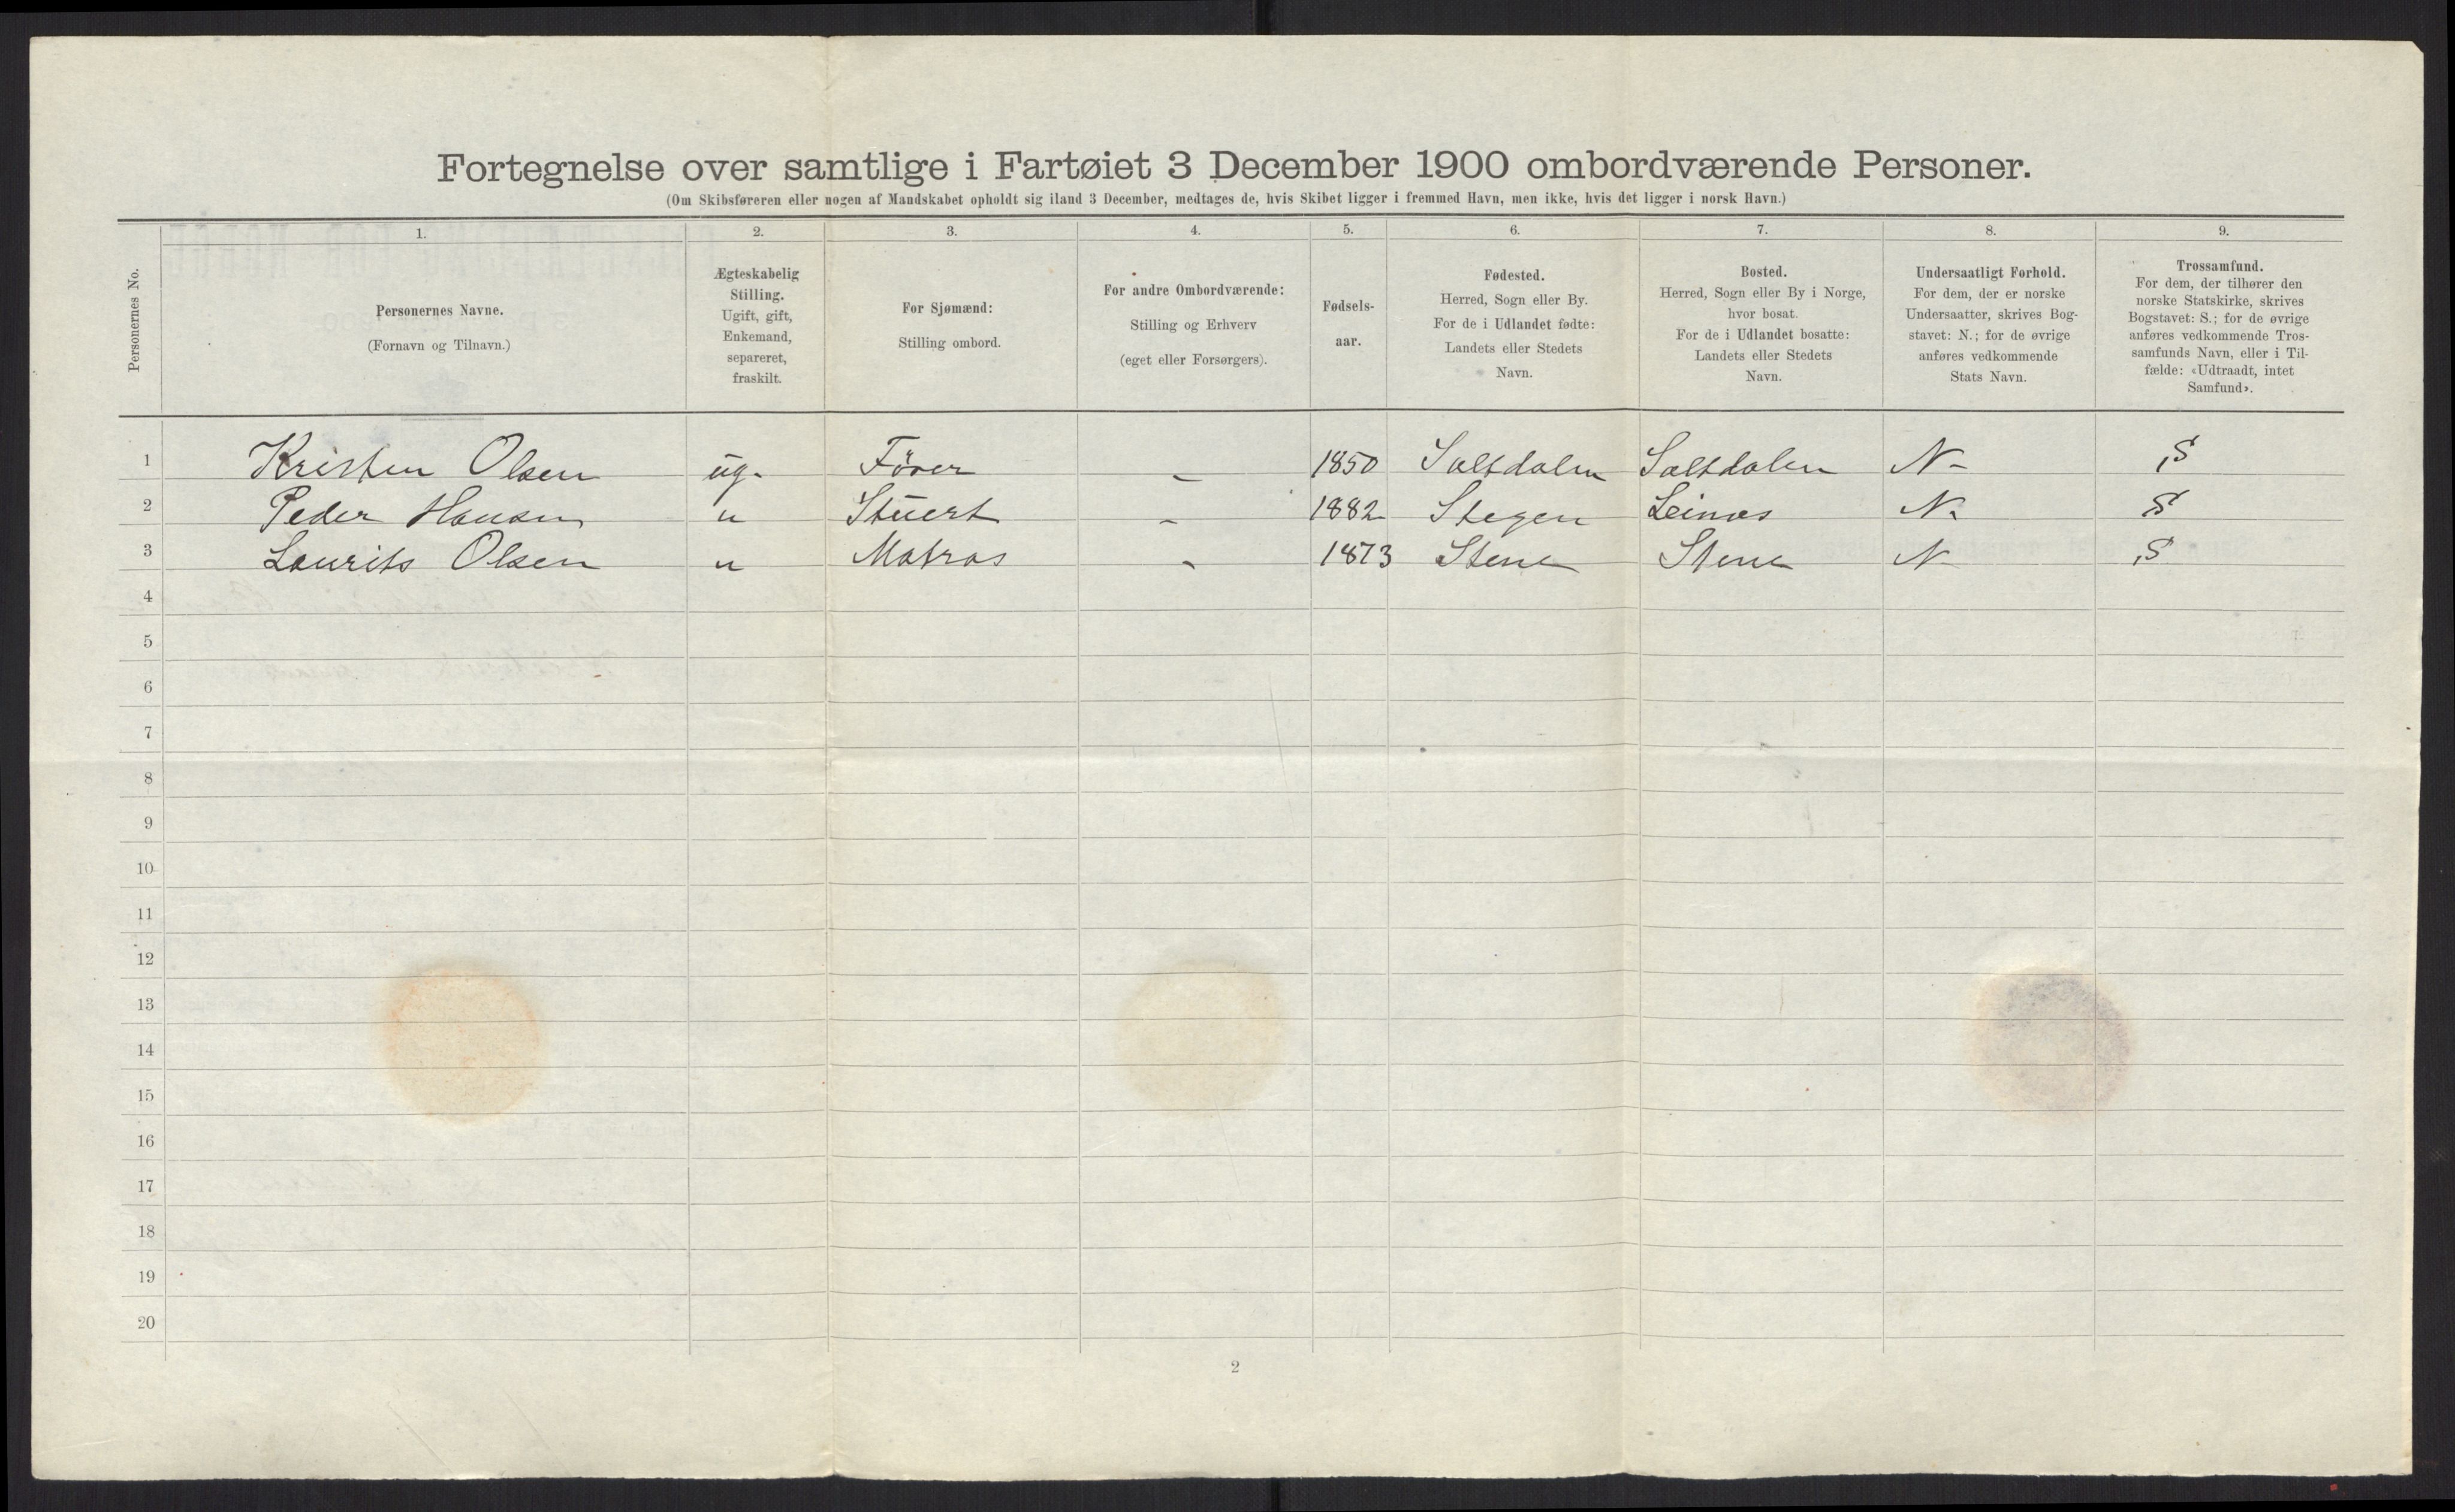 Fortegnelse over samtlige i Fartøiet 3 December 1900 ombordværende Personer.
(Om Skibsføreren eller nogen af Mandskabet opholdt sig iland 3 December, medtages de, hvis Skibet ligger i fremmed Havn, men ikke, hvis det ligger i norsk Havn.)
Personernes No.
1.
Personernes Navne.
(Fornavn og Tilnavn.)
2.
Ægteskabelig
Stilling.
Ugift, gift,
Enkemand,
separeret,
fraskilt.
3.
For Sjømænd:
Stilling ombord.
4.
For andre Ombordværende:
Stilling og Erhverv
(eget eller Forsørgers).
5.
Fødsels-
aar.
6.
Fødested.
Herred, Sogn eller By.
For de i Udlandet fødte:
Landets eller Stedets
Navn.
7.
Bosted.
Herred, Sogn eller By i Norge,
hvor bosat.
For de i Udlandet bosatte:
Landets eller Stedets
Navn.
8.
Undersaatligt Forhold.
For dem, der er norske
Undersaatter, skrives Bog-
stavet: N.; for de øvrige
anføres vedkommende
Stats Navn.
9.
Trossamfund.
For dem, der tilhører den
norske Statskirke, skrives
Bogstavet: S.; for de øvrige
anføres vedkommende Tros-
samfunds Navn, eller i Til-
fælde: «Udtraadt, intet
Samfund».
1 Kristen Olsen ug. Förer – 1850 Saltdalen Saltdalen N– S
2 Peder Hansen u Stuert – 1882 Stegen Leines N. S
3 Laurits Olsen u Matros – 1873 Stene Stene N S
4
5
6
7
8
9
10
11
12
13
14
15
16
17
18
19
20
2